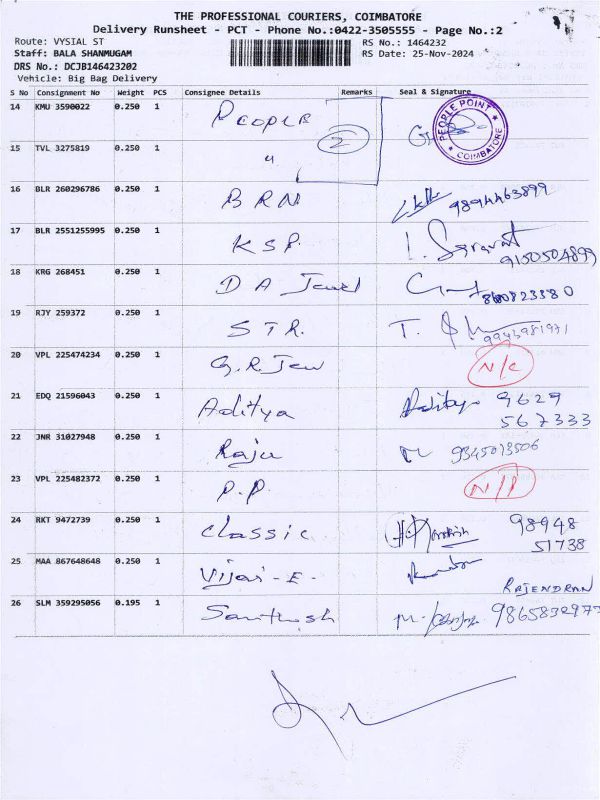 THE PROFESSIONAL COURIERS, COIMBATORE
Delivery Runsheet - PCT - Phone No.:0422-3505555 - Page No.:2
Route: VYSIAL ST RS No.: 1464232
Staff: BALA SHANMUGAM RS Date: 25-Nov-2024
DRS No.: DCJB146423202
Vehicle: Big Bag Delivery
S No Consignment No Weight PCS Consignee Details Remarks Seal & Signature
14 KMU 3590022 0.250 1 PEOPLE 2 PEOPLE POINT COIMBATORE
15 TVL 3275819 0.250 1 "
16 BLR 260296786 0.250 1 BRN 9894463899
17 BLR 2551255995 0.250 1 KSP. 9150504899
18 KRG 268451 0.250 1 DA Jewel
19 RJY 259372 0.250 1 STR. T. 9943981971
20 VPL 225474234 0.250 1 G.R.Jew N/C
21 EDQ 21596043 0.250 1 Aditya Aditya 9629
567333
22 JNR 31027948 0.250 1 Raju 9345013506
23 VPL 225482372 0.250 1 P.P. N/P
24 RKT 9472739 0.250 1 classic 98948
51738
25 MAA 867648648 0.250 1 Vijai-E-
RAJENDRAN
26 SLM 359295056 0.195 1 Santhosh M.